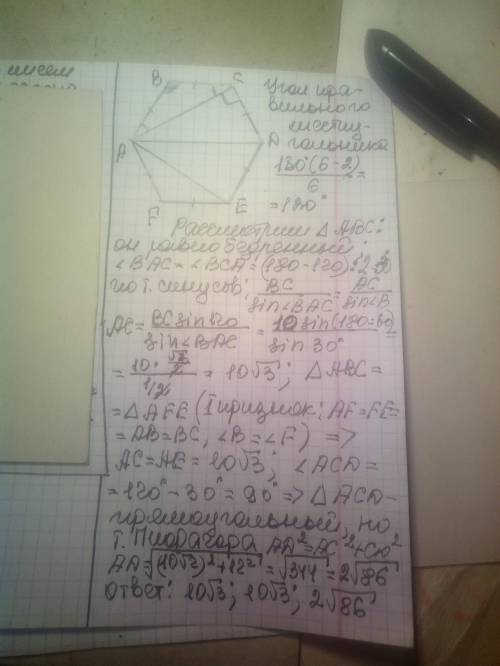 B
C
Угол пра-
вильного
шестиу-
гольника
A
D
180°(6-2)/6 =
= 120°
F
E
Рассмотрим △ABC:
он равнобедренный;
∠BAC = ∠BCA = (180-120):2=30
по т. синусов; BC/sin∠BAC = AC/sin∠B
AC = BC sin120/sin∠BAC = 10 sin(180-60)/sin 30° =
= 10·√3/2 / 1/2 = 10√3; △ABC =
= △AFE (I признак: AF=FE=
= AB=BC, ∠B=∠F) =>
AC=AE=10√3; ∠ACD=
= 120° - 30° = 90° => △ACD-
прямоугольный, по
т. Пифагора AD²=AC²+CD²
AD=√(10√3)²+12² = √344 = 2√86
ответ: 10√3; 10√3; 2√86